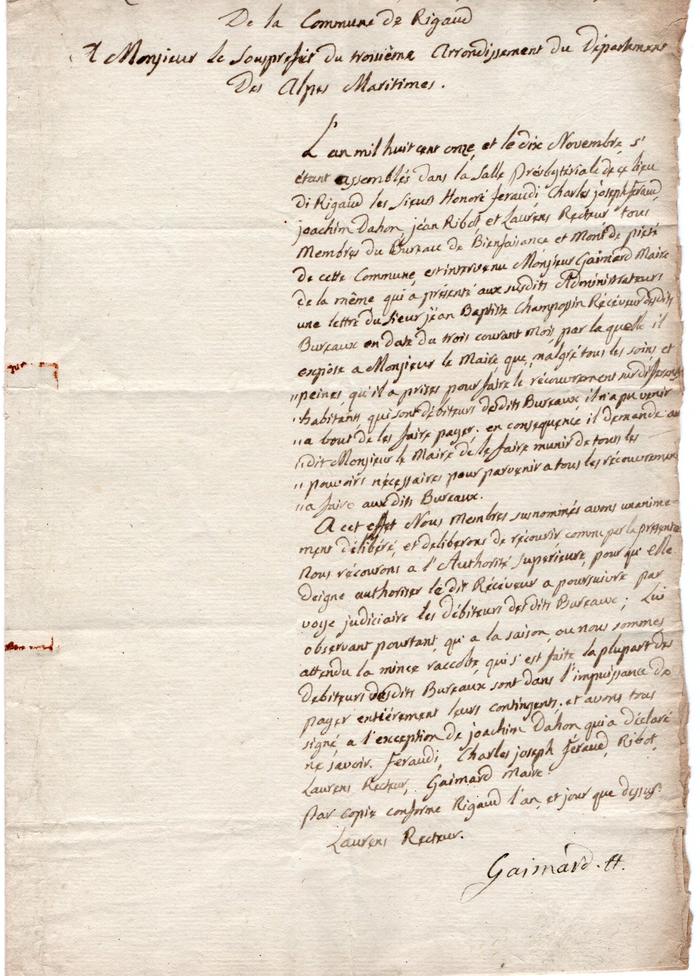 De la Commune de Rigaud
A Monsieur le Sousprefet du troisième Arrondissement du Département
Des Alpes Maritimes.
L'an mil huit cent onze, et le dix Novembre s'
étant assemblés dans la Salle Presbytériale de ce lieu
di Rigaud les Sieurs Honoré feraudi Charles joseph feraud,
joachim Dahon, jean Ribot et Laurens Recteur tous
Membres du Bureau de Bienfaisance et Mont de pieté
de cette Commune, est intervenu Monsieur Gaimard Maire
de la même qui a présenté aux susdits Administrateurs
une lettre du Sieur jean Baptiste Champossin Recéveur desdits
Bureaux en date du trois courant mois par la quelle il
expose a Monsieur le Maire que, malgré tous les soins et
"peines qu'il a prises pour faire le récouvrement sur différents
"habitans qui sont débiteurs desdits Bureaux il n'a pu venir
"a bout de les faire payer. en consequence il demande au
"dit Monsieur le Maire de le faire munir de tous les
"pouvoirs nécessaires pour parvenir a tous les récouvremens
"a faire auxdits Bureaux.
A cet effet Nous Membres susnominés avons unanime-
ment délibéré, et deliberons de récourir comme par la présente
Nous récourons a l'Authorité Superieure, pour qu'elle
Deigne authoriser le dit Réceveur a poursuivre par
voye judiciaire les débiteurs desdits Bureaux; Lui
observant pourtant qu'a la saison, ou nous sommes
attendu la mince raccolte, qui s'est faite la plupart des
debiteurs desdits Bureaux sont dans l'impuissance de
payer entiérement leurs contingents. et avons tous
signé, a l'exception de joachim Dahon qui a déclaré
ne savoir. Feraudi, Charles joseph feraud, Ribot,
Laurens Recteur, Gaimard maire.
Par copie conforme Rigaud l'an, et jour que dessus.
Laurens Recteur.
Gaimard